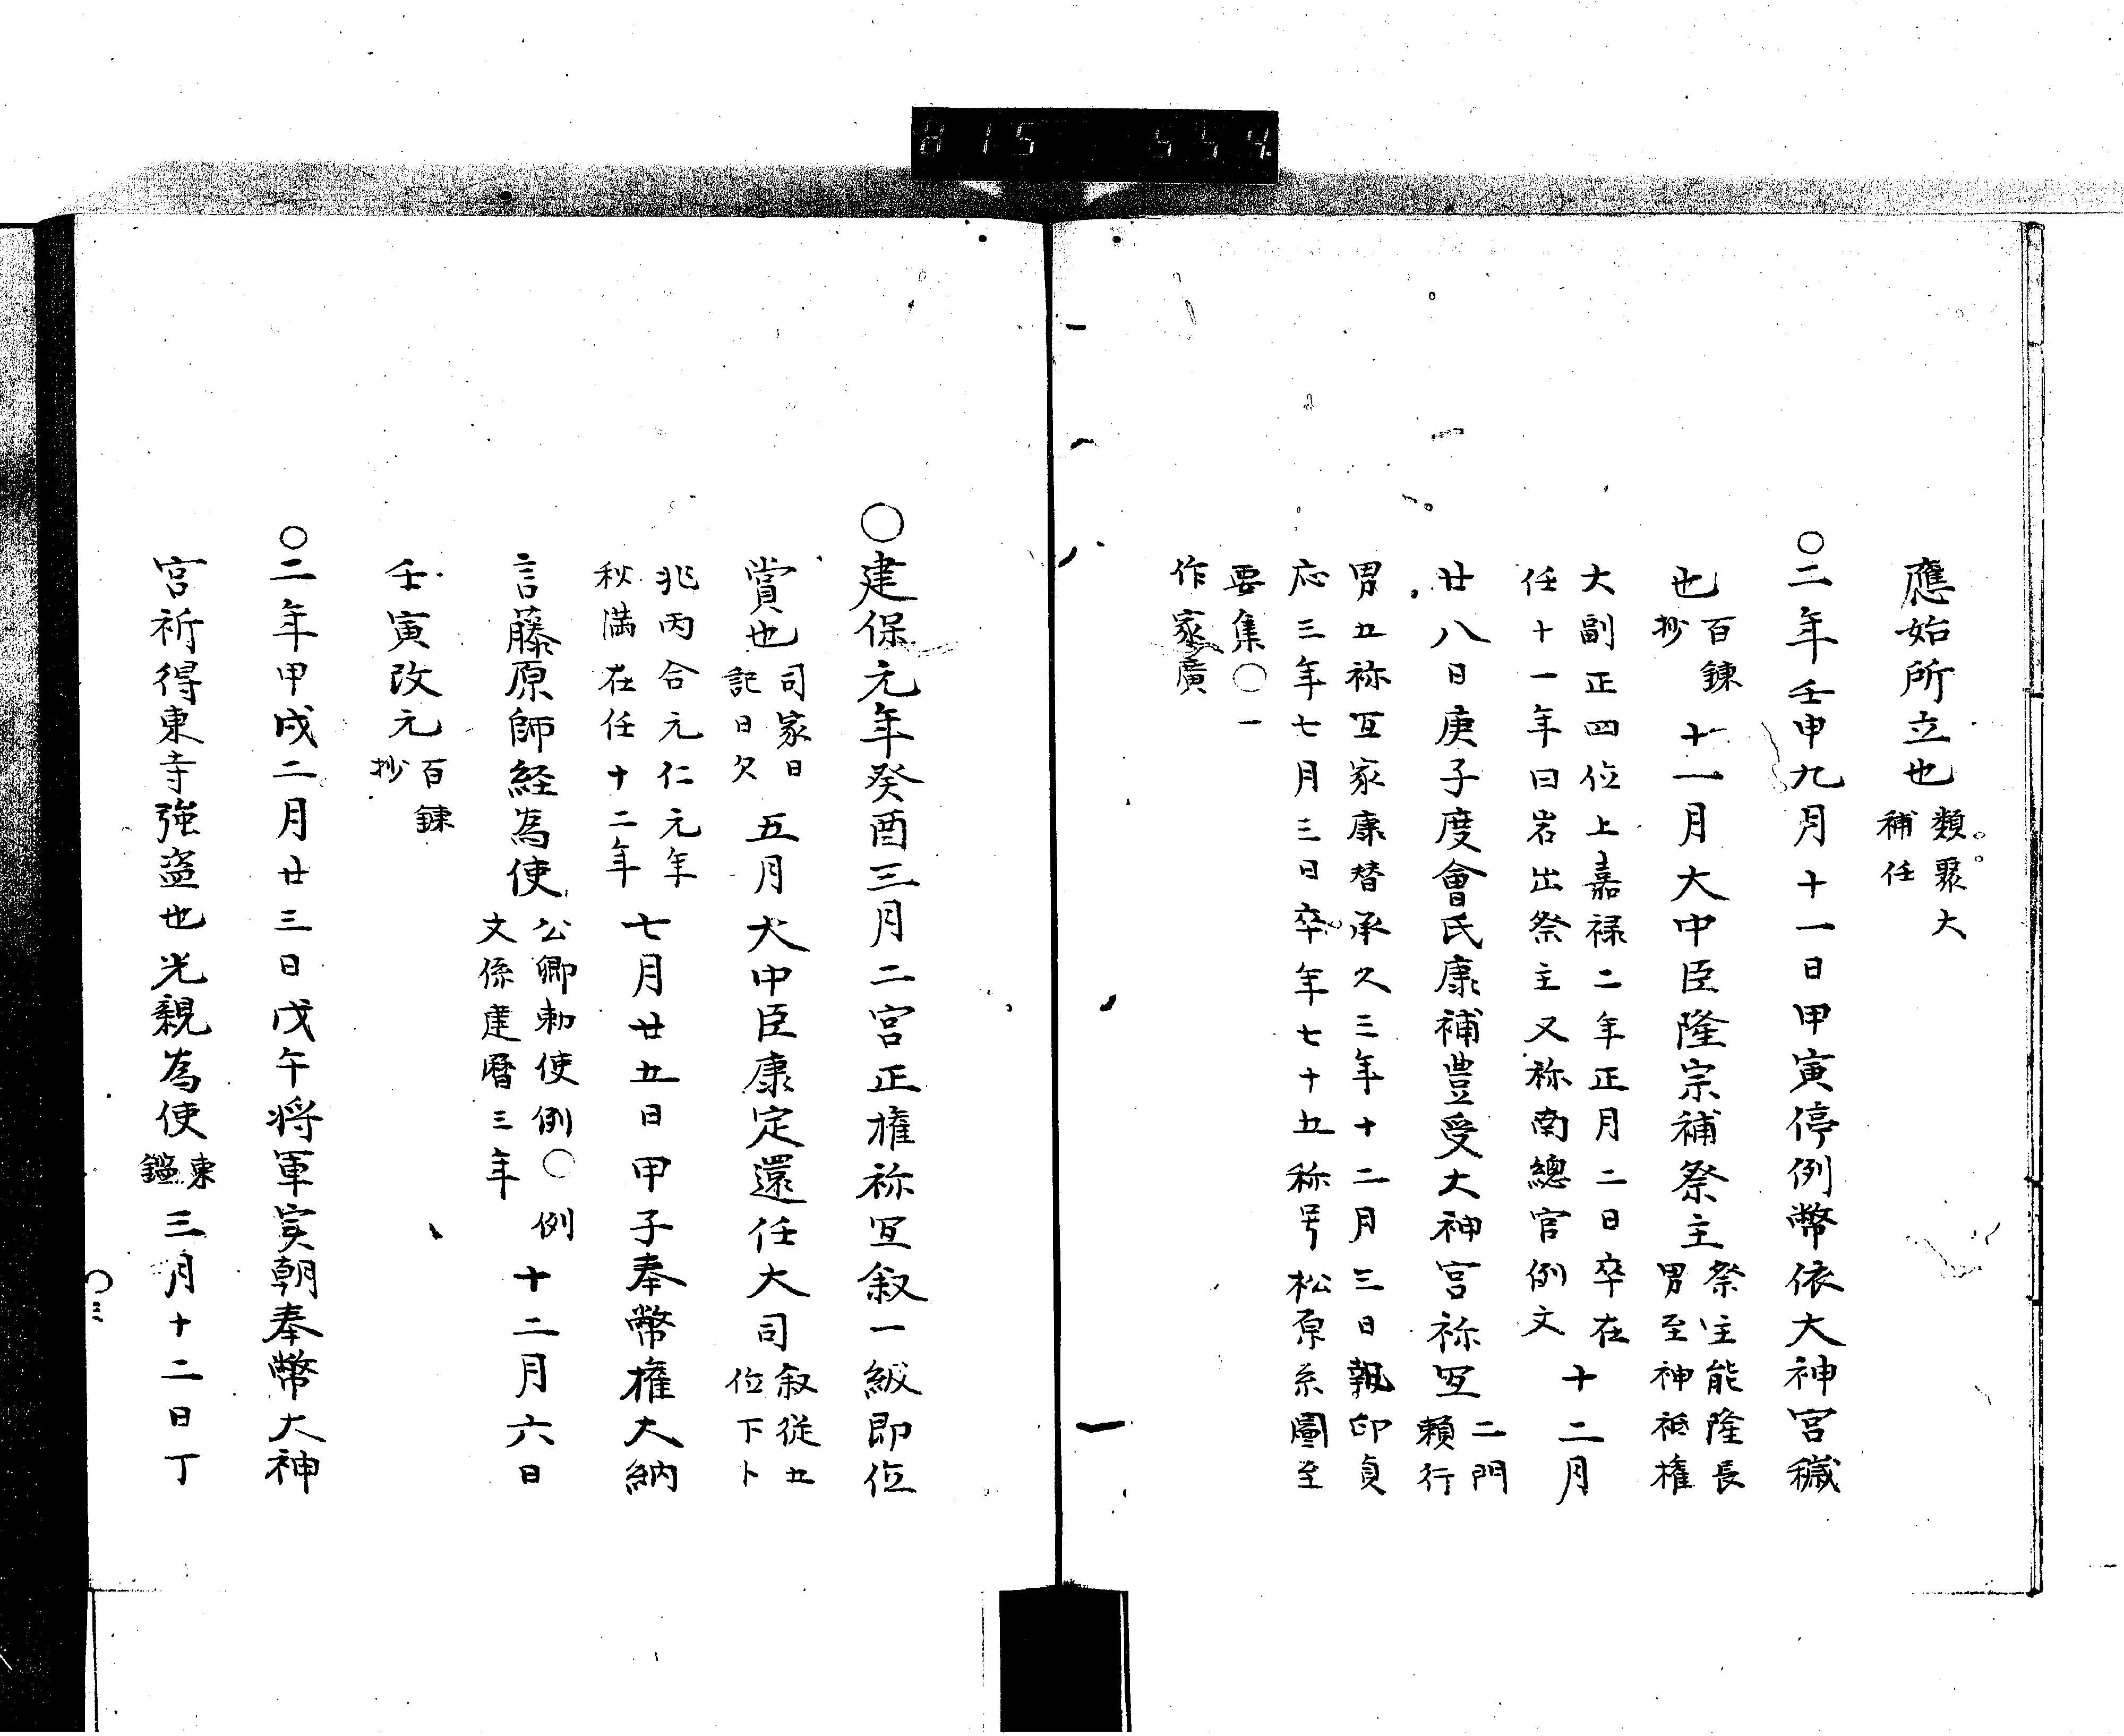 應始所立也 類聚大
補任
○二年壬申九月十一日甲寅停例幣依大神宮穢
也 百鍊
抄 十一月大中臣隆宗補祭主 祭主能隆長
男至神祗権
大副正四位上嘉禄二年正月二日卒在
任十一年曰岩出祭主又祢南總官例文 十二月
廿八日庚子度會氏康補豊受大神宮祢冝 二門
頼行
男五祢冝家康替承久三年十二月三日執印貞
応三年七月三日卒年七十五称号松原系圖至
要集○一
作家廣
○建保元年癸酉三月二宮正権祢冝叙一級即位
賞也 司家日
記日欠 五月大中臣康定還任大司 叙従五
位下卜
兆丙合元仁元年
秋満在任十二年 七月廿五日甲子奉幣権大納
言藤原師経為使 公卿勅使例○例
文係建暦三年 十二月六日
壬寅改元 百鍊
抄
○二年甲戌二月廿三日戊午将軍実朝奉幣大神
宮祈得東寺強盗也光親為使 東
鑑 三月十二日丁
815 554